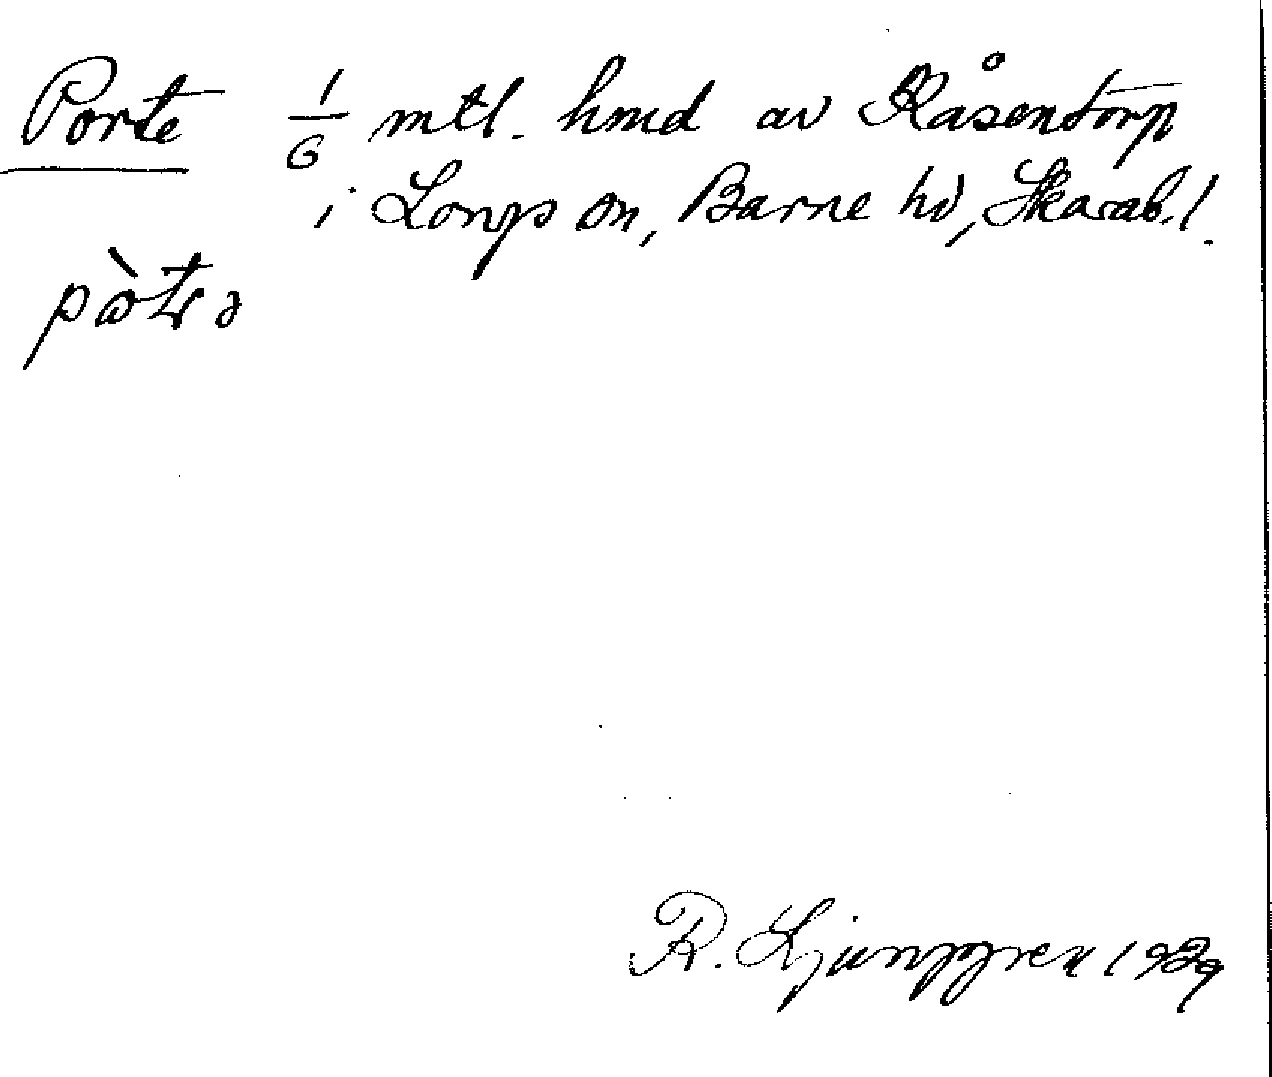 Porte 1/6 mtl. hmd av Råsentorp
i Longs sn, Barne hd, Skarab. l.
pòtə
R. Ljunggren 1929